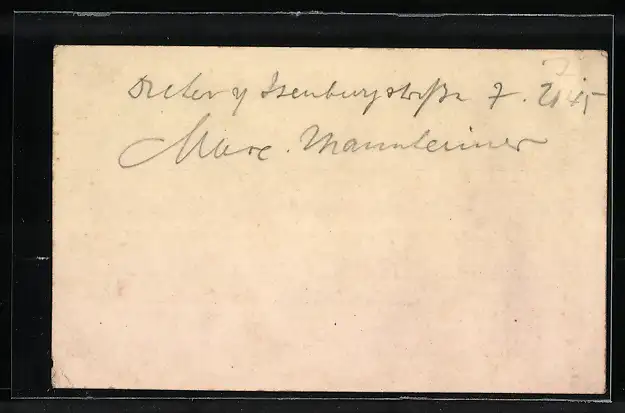 Dieter v Isenburgstraße 7. 2145
Marc. Mannheimer